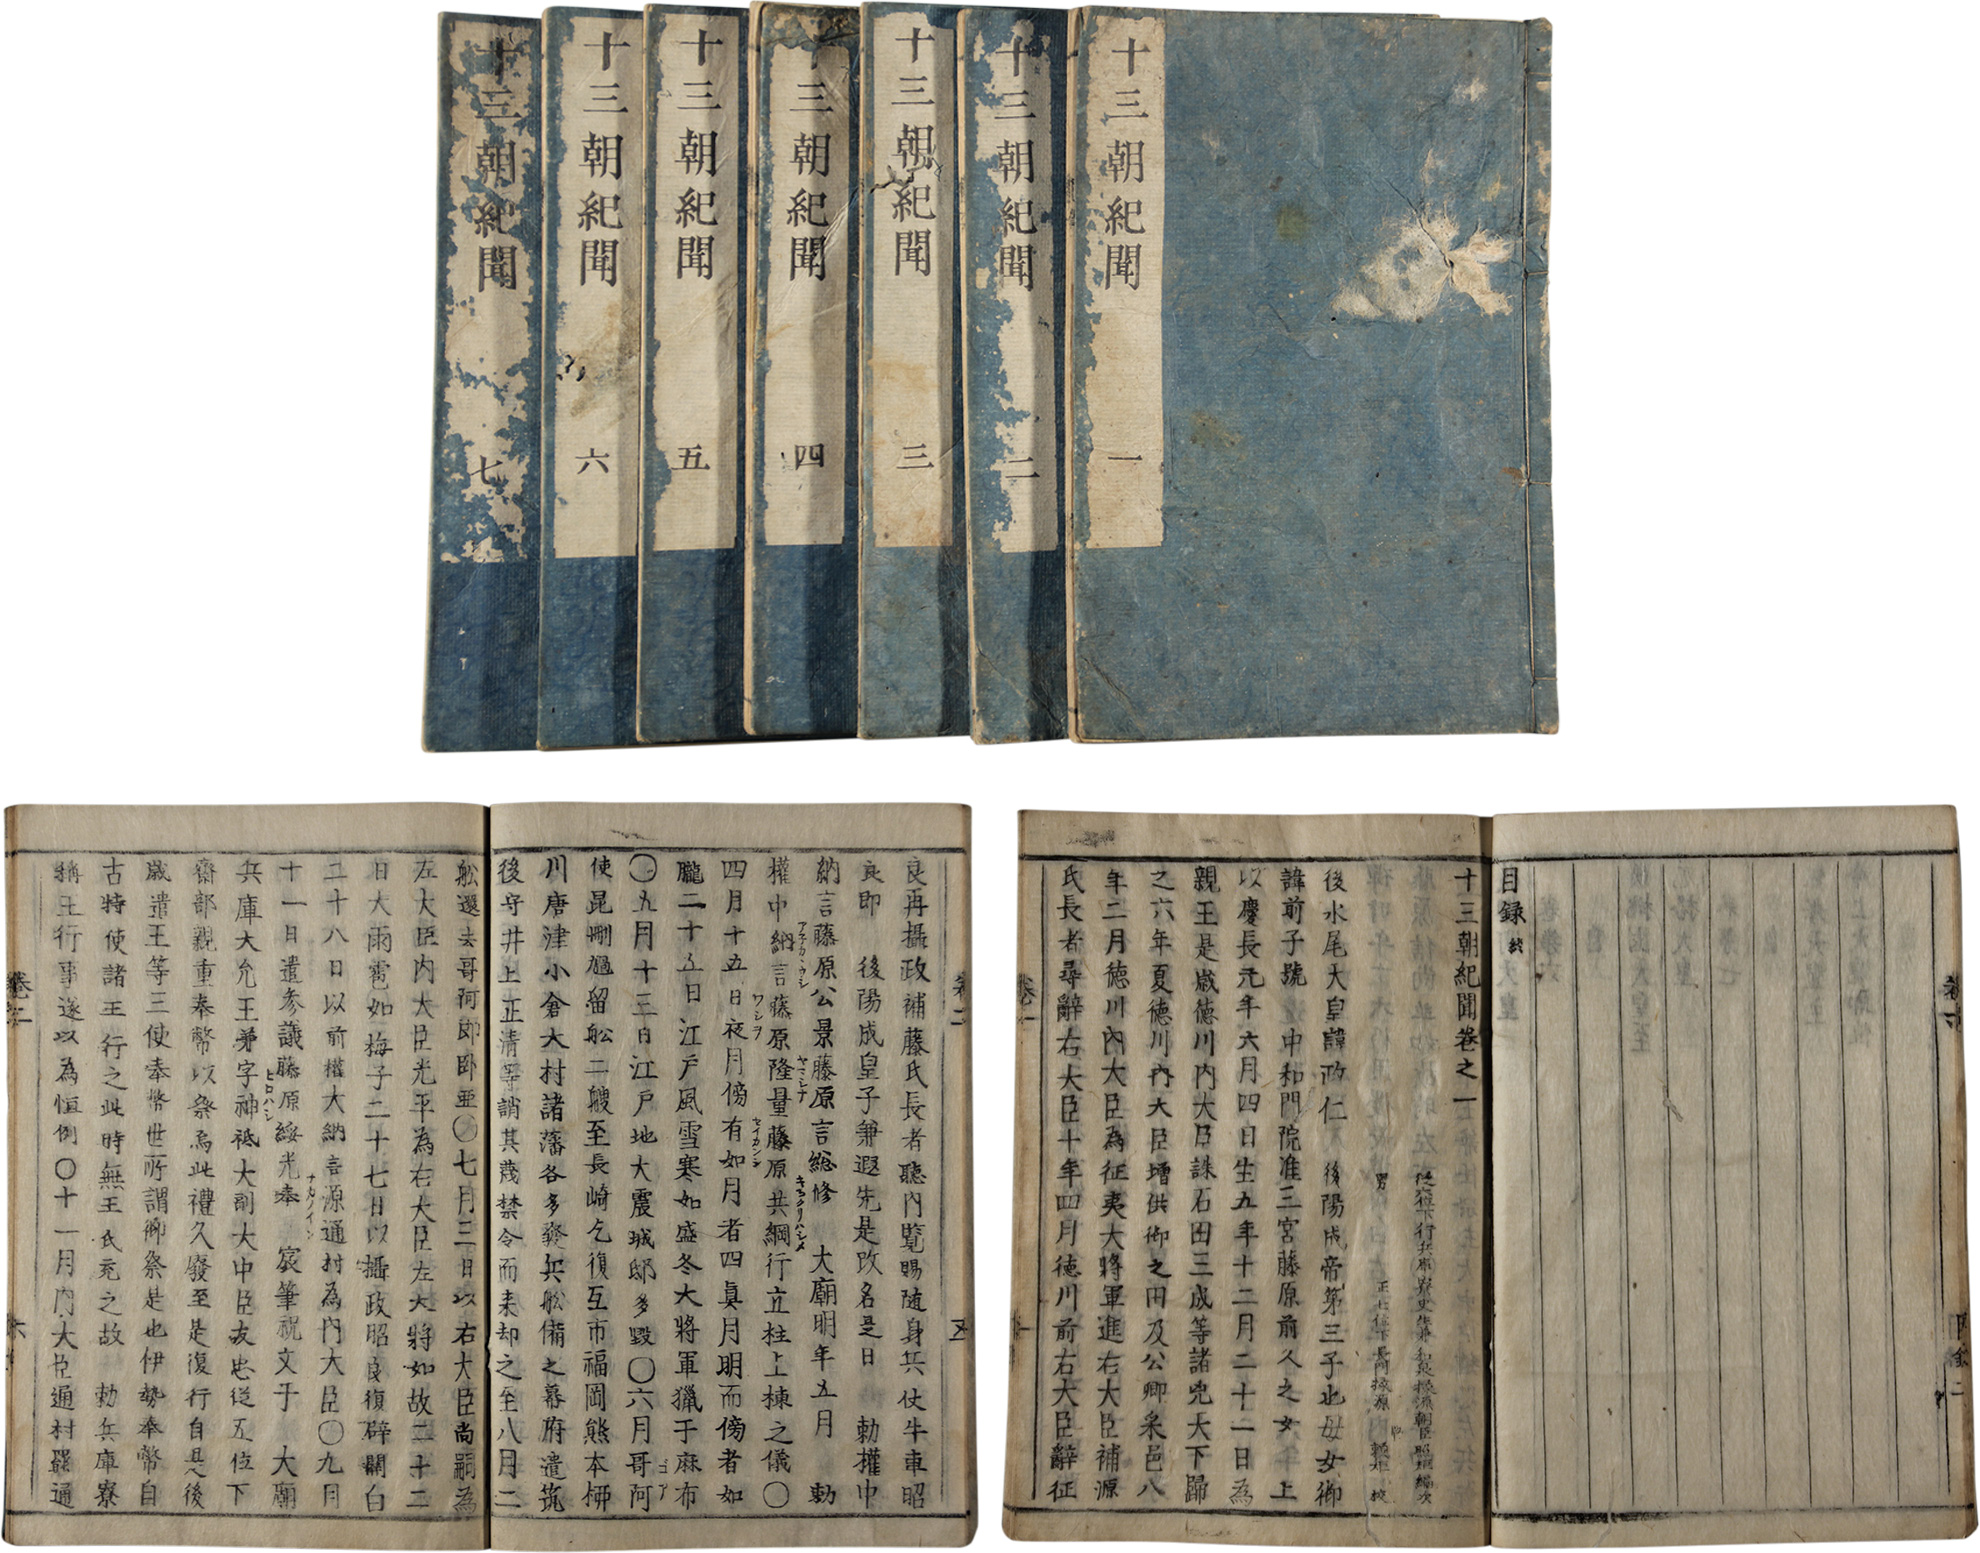 十三朝紀聞 一
十三朝紀聞 二
十三朝紀聞 三
十三朝紀聞 四
十三朝紀聞 五
十三朝紀聞 六
十三朝紀聞 七
目録終
十三朝紀聞卷之一
後水尾天皇諱政仁 後陽成帝第三子也母女御
諱前子號 中和門院准三宮藤原前久之女 上
以慶長元年六月四日生五年十二月二十一日為
親王是歳徳川内大臣誅石田三成等諸兇天下歸
之六年夏徳川内大臣增供御之田及公卿釆邑八
年二月徳川内大臣為征夷大將軍進右大臣補源
氏長者尋辭右大臣十年四月徳川前右大臣辭征
良再攝政補藤氏長者聽内覽賜随身兵仗牛車昭
良即 後陽成皇子兼遐先是改名是日 勅權中
納言藤原公景藤原言総修 大廟明年五月 勅
權中納言藤原隆量藤原共綱行立柱上棟之儀〇
四月十五日夜月傍有如月者四眞月明而傍者如
朧二十五日江戸風雪寒如盛冬大將軍獵于麻布
〇五月十三日江戸地大震城邸多毀〇六月哥阿
使昆刪媼留舩二艘至長崎乞復互市福岡熊本柳
川唐津小倉大村諸藩各多發兵舩備之幕府遣筑
後守井上正清等誚其蔑禁令而来却之至八月二
舩還去哥阿即卧亜〇七月三日以右大臣尚嗣為
左大臣内大臣光平為右大臣左大將如故二十二
日大雨雹如梅子二十七日以攝政昭良復辟關白
二十八日以前權大納言源通村為内大臣〇九月
十一日遣参議藤原綏光奉 宸筆祝文于 大廟
兵庫大允王弟字神祗大副大中臣友忠從五位下
齋部親重奉幣以祭焉此禮久廢至是復行自是後
歳遣王等三使奉幣世所謂例祭是也伊勢奉幣自
古特使諸王行之此時無王氏充之故 勅兵庫寮
稱王行事遂以為恒例〇十一月内大臣通村罷通